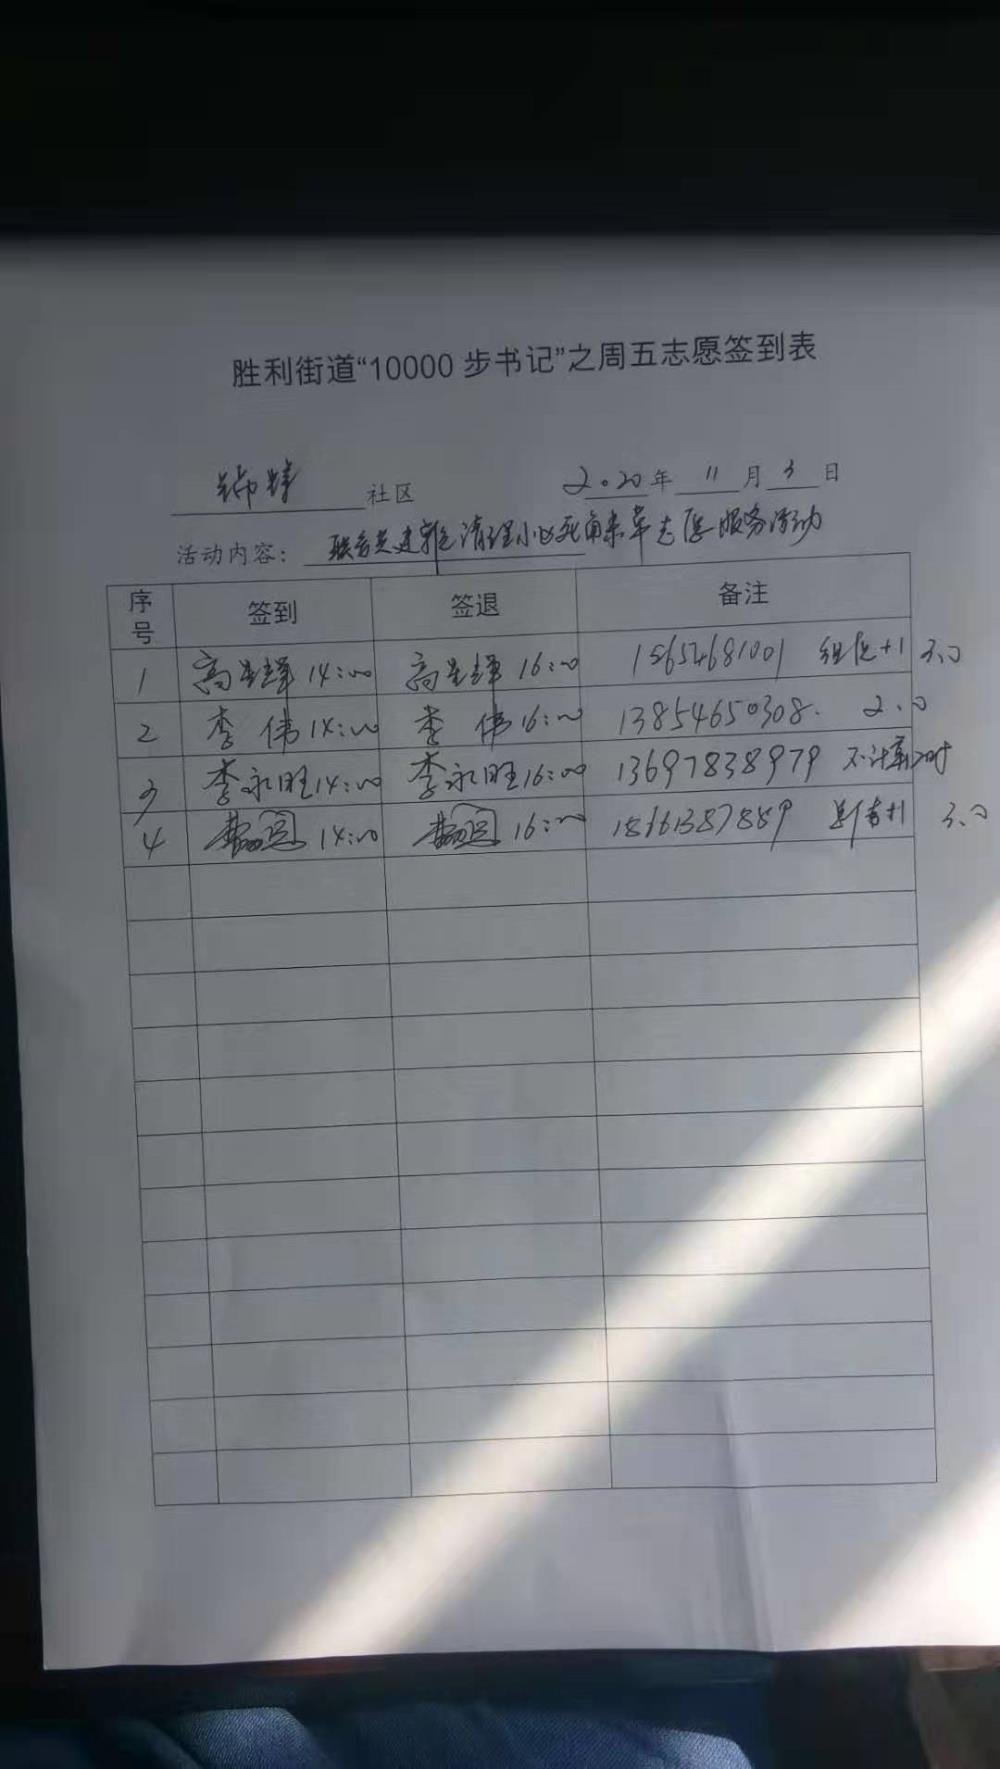 胜利街道“10000 步书记”之周五志愿签到表
锦绣 社区 2020 年 11 月 3 日
活动内容： 联合共建 清理小区死角杂草志愿服务活动
序号 签到 签退 备注
1 高 14:00 高 16:00 15652681001 组长+1 3.0
2 李伟 14:00 李伟 16:00 13854650308. 2.0
3 李永旺 14:00 李永旺 16:00 13697838979 不计算时
4 14:00 16:00 +1 3.0